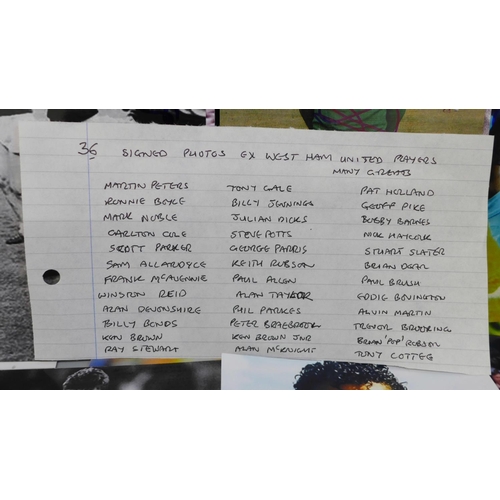 36 SIGNED PHOTOS EX WEST HAM UNITED PLAYERS
MANY GREATS
MARTIN PETERS TONY GALE PAT HOLLAND
RONNIE BOYCE BILLY JENNINGS GEOFF PIKE
MARK NOBLE JULIAN DICKS BOBBY BARNES
CARLTON COLE STEVE POTTS NICK HAYCOCK
SCOTT PARKER GEORGE PARRIS STUART SLATER
SAM ALLARDYCE KEITH ROBSON BRIAN DEAR
FRANK McAVENNIE PAUL ALLEN PAUL BRUSH
WINSTON REID ALAN TAYLOR EDDIE BOVINGTON
ALAN DEVONSHIRE PHIL PARKES ALVIN MARTIN
BILLY BONDS PETER BRABROOK TREVOR BROOKING
KEN BROWN KEN BROWN JNR BRIAN 'POP' ROBSON
RAY STEWART ALAN McKNIGHT TONY COTTEE